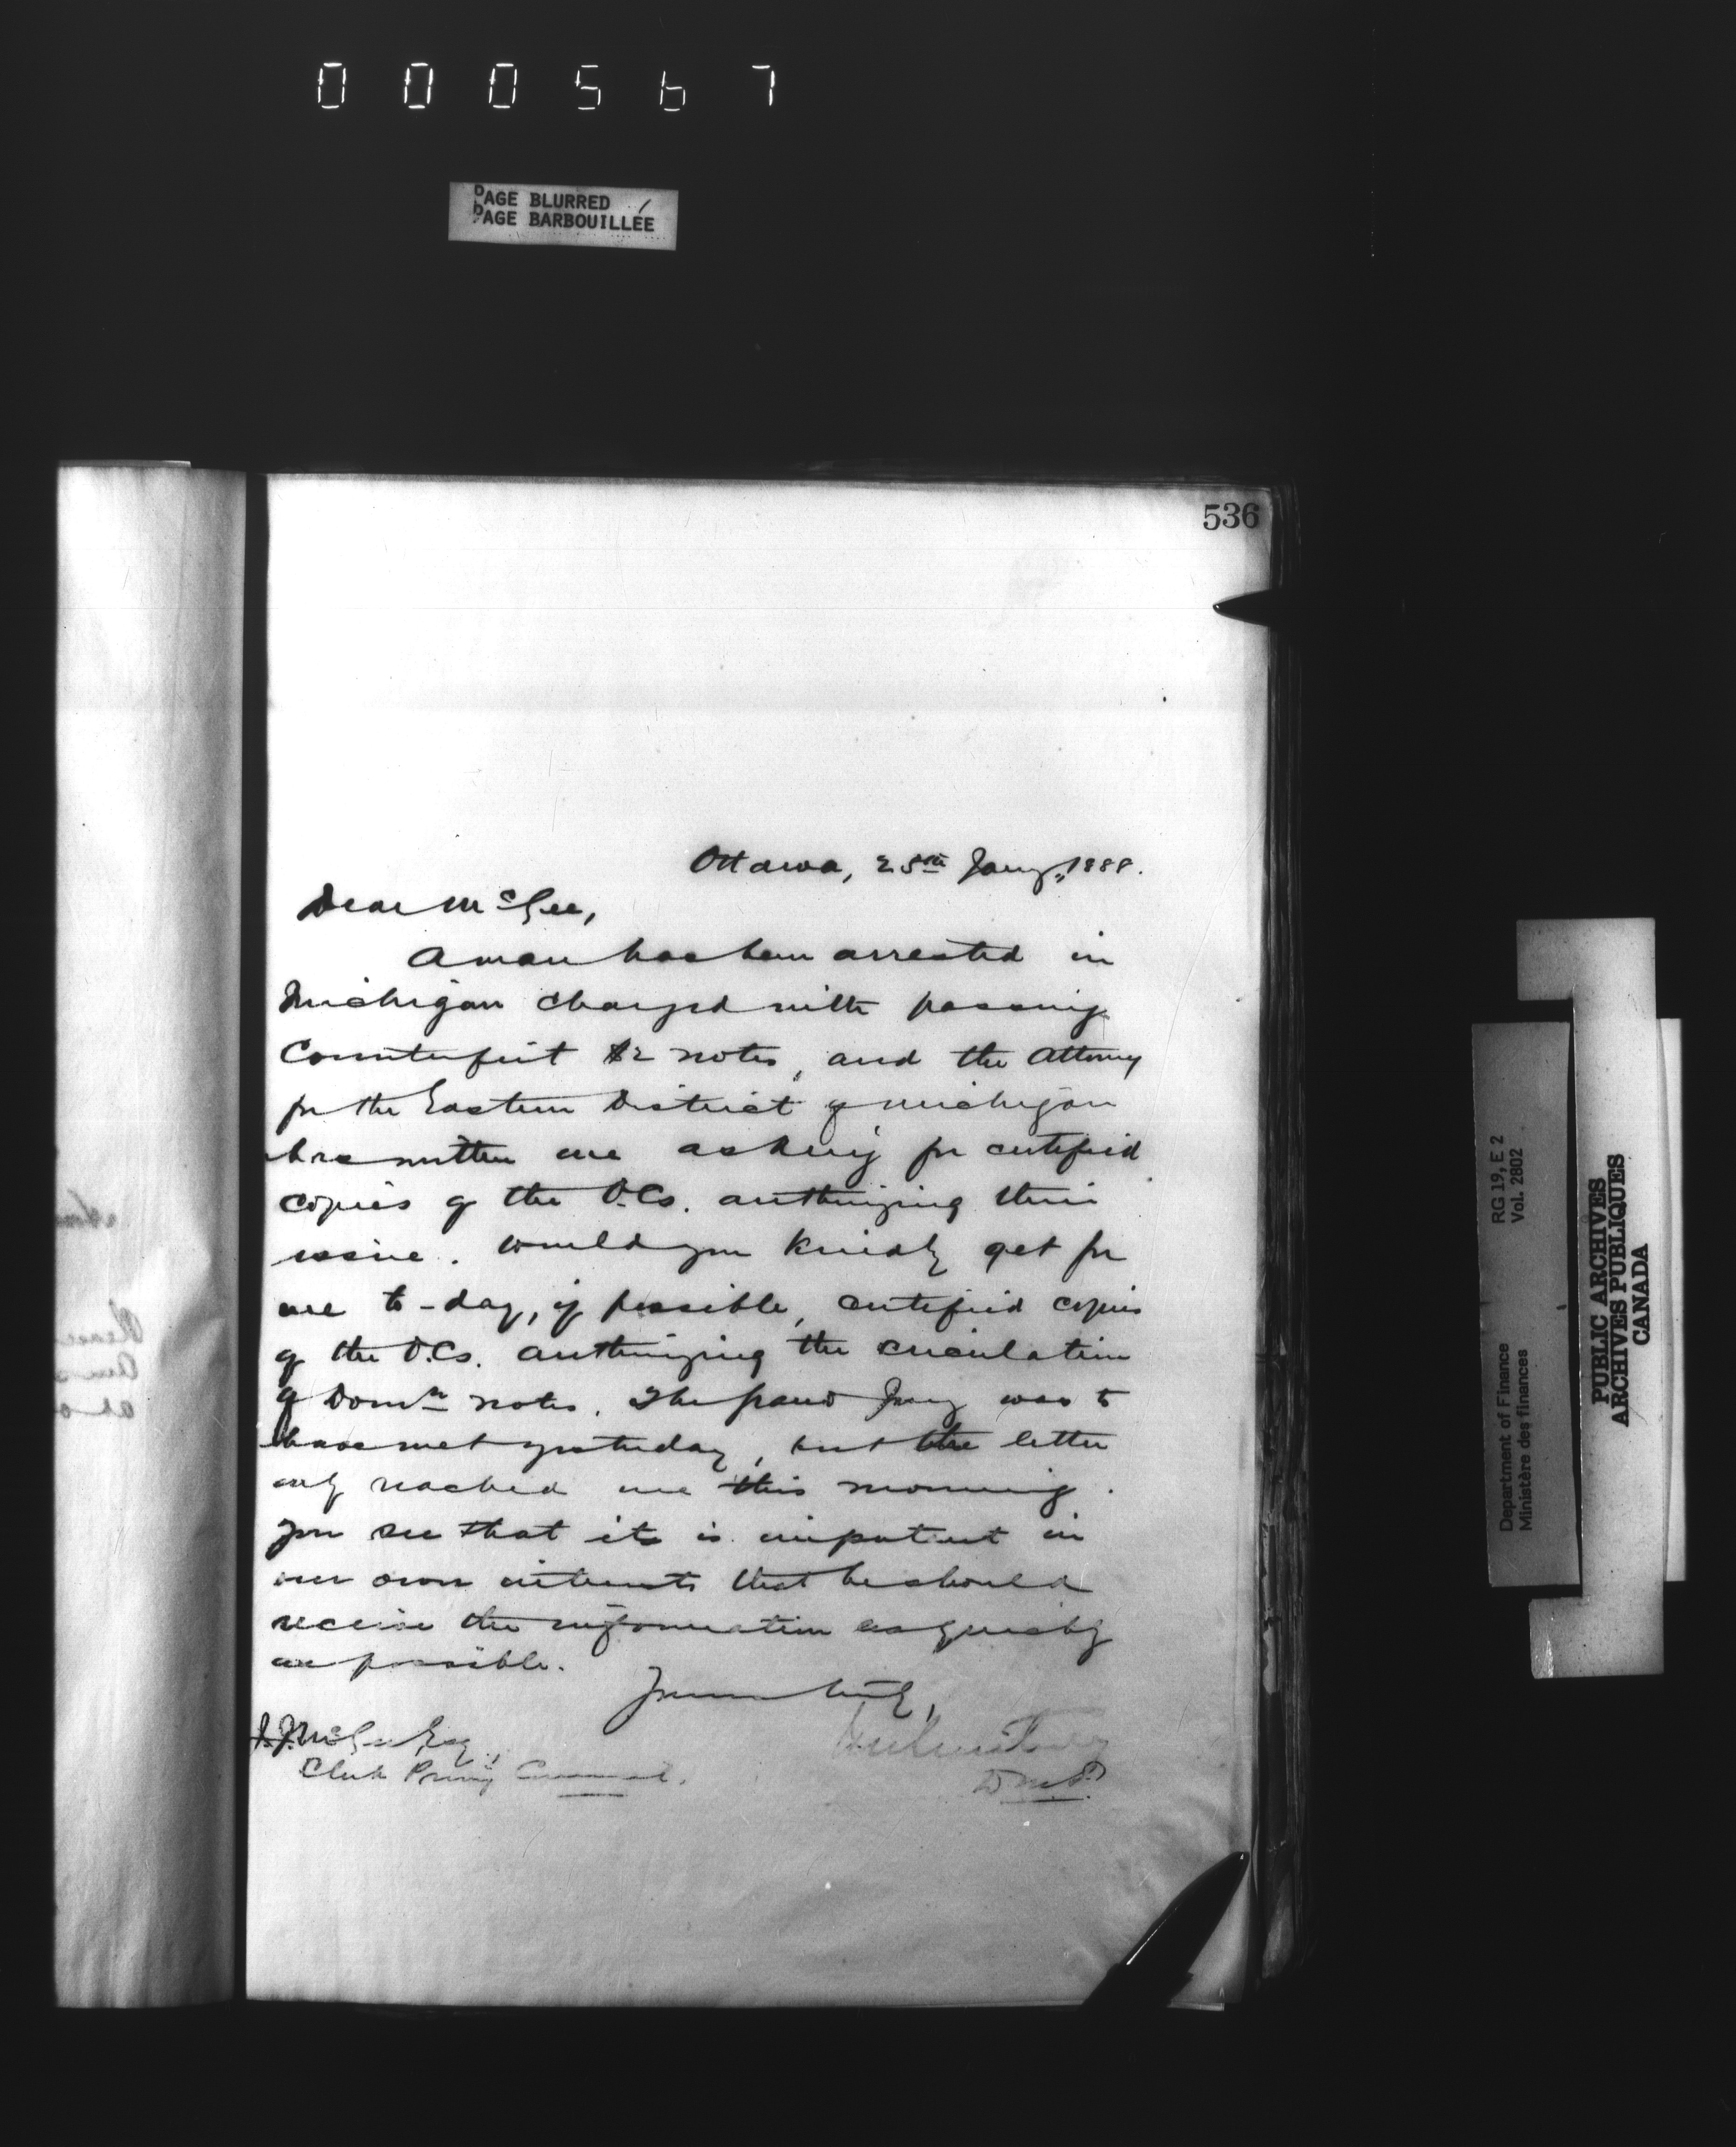 000567
PAGE BLURRED
PAGE BARBOUILLÉE
536
Ottawa, 25th Jany, 1888.
Dear McGee,
A man has been arrested in
Michigan charged with passing
Counterfeit $2 notes, and the Attorney
for the Eastern District of Michigan
has written me asking for certified
copies of the O.Cs. authorizing their
issue. Would you kindly get for
me to-day, if possible, certified copies
of the O.Cs. authorizing the circulation
of Domn notes. The Grand Jury was to
have met yesterday, but the letter
only reached me this morning.
You see that it is important in
our own interests that he should
receive the information as quickly
as possible.
Yours truly,
J.J. McGee Esq.,
Clerk Privy Council.
D.M.F.
RG 19, E 2
Vol. 2802
Department of Finance
Ministère des finances
PUBLIC ARCHIVES
ARCHIVES PUBLIQUES
CANADA